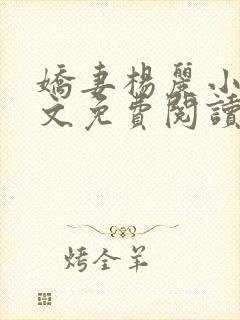 嬌妻楊麗小
文免費閱讀
烤全羊